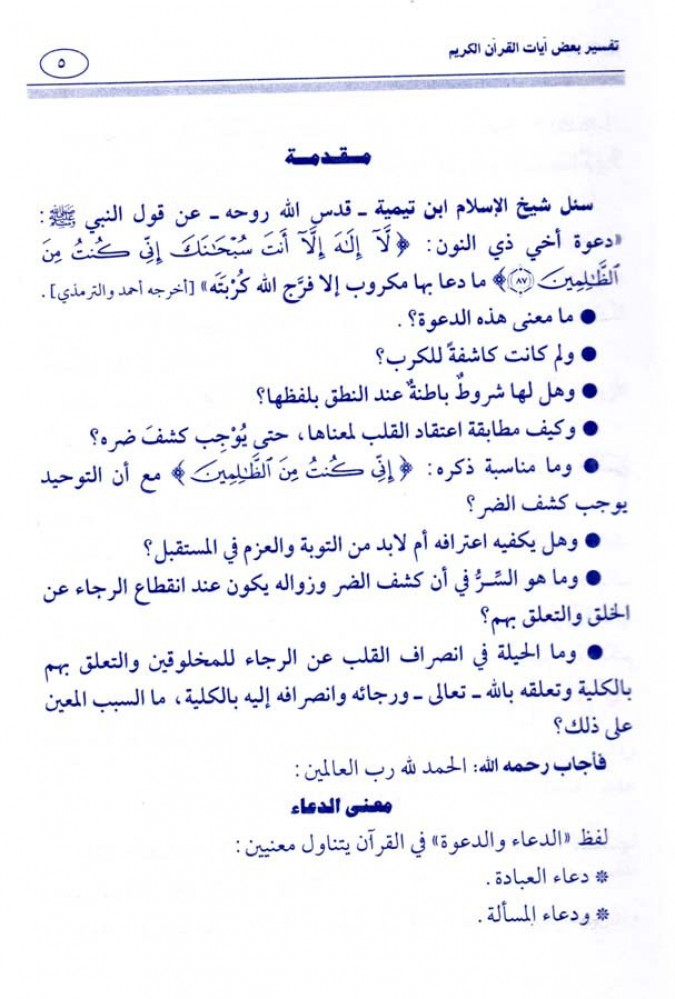 تفسير بعض آيات القرآن الكريم
٥
مقدمة
سئل شيخ الإسلام ابن تيمية ـ قدس الله روحه ـ عن قول النبي ﷺ :
«دعوة أخي ذي النون: ﴿ لَّآ إِلَٰهَ إِلَّآ أَنتَ سُبْحَٰنَكَ إِنِّي كُنتُ مِنَ
ٱلظَّٰلِمِينَ ۝٨٧ ﴾ ما دعا بها مكروب إلا فرَّج الله كُرْبتَه» [أخرجه أحمد والترمذي] .
● ما معنى هذه الدعوة؟ .
● ولم كانت كاشفةً للكرب؟
● وهل لها شروطٌ باطنةٌ عند النطق بلفظها؟
● وكيف مطابقة اعتقاد القلب لمعناها، حتى يُوْجِب كشفَ ضره؟
● وما مناسبة ذكره: ﴿ إِنِّي كُنتُ مِنَ ٱلظَّٰلِمِينَ ﴾ مع أن التوحيد
يوجب كشف الضر؟
● وهل يكفيه اعترافه أم لابد من التوبة والعزم في المستقبل؟
● وما هو السِّرُّ في أن كشف الضر وزواله يكون عند انقطاع الرجاء عن
الخلق والتعلق بهم؟
● وما الحيلة في انصراف القلب عن الرجاء للمخلوقين والتعلق بهم
بالكلية وتعلقه بالله ـ تعالى ـ ورجائه وانصرافه إليه بالكلية، ما السبب المعين
على ذلك؟
فأجاب رحمه الله: الحمد لله رب العالمين :
معنى الدعاء
لفظ «الدعاء والدعوة» في القرآن يتناول معنيين :
❊ دعاء العبادة .
❊ ودعاء المسألة .